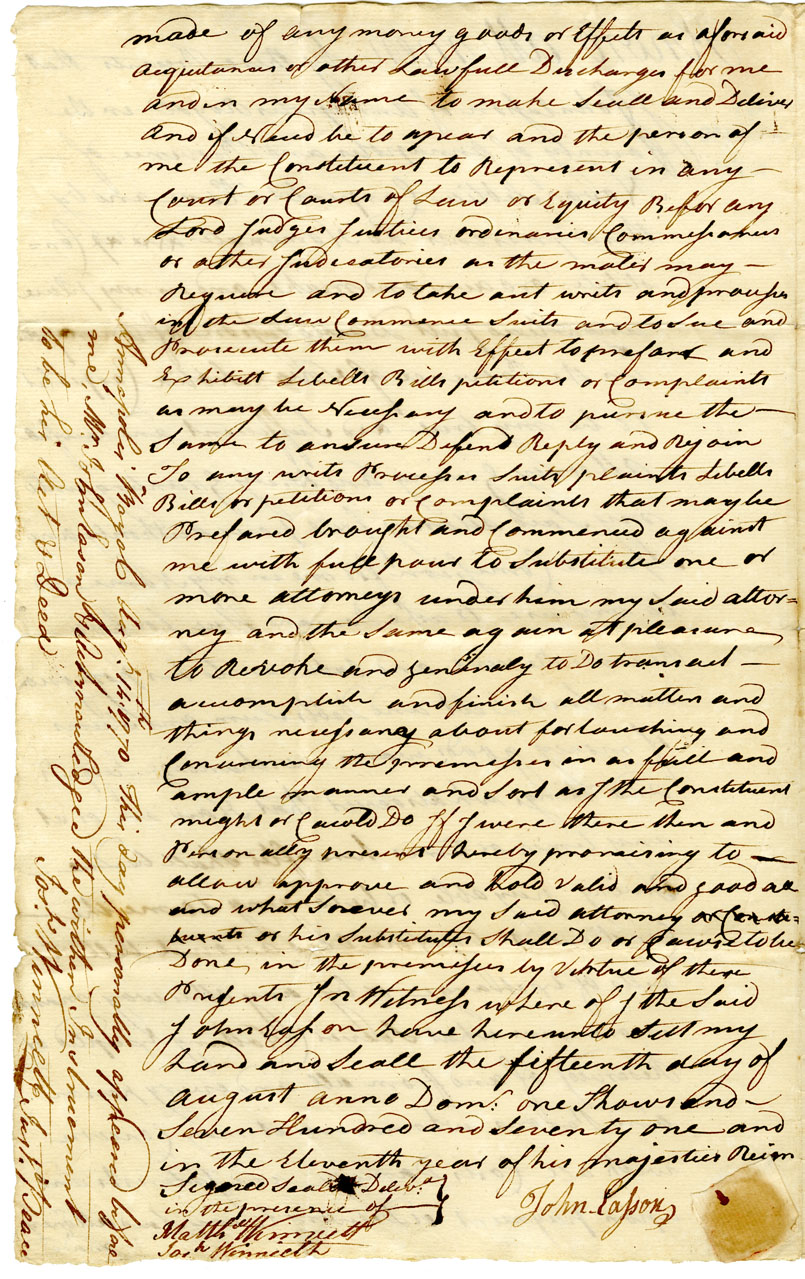 made of any money goods or Effects as aforsaid
Acquittances or other Lawfull Discharges for me
and in my Name to make Seall and Deliver
And if Need be to apear and the person of
me the Constituent to Represent in any—
Court or Courts of Law or Equity Befor any
Lord Judges Justices ordinaries Commissaries
or other Judicatories as the mater may—
Require and to take out writs and processes
in the Law Commence Suits and to Sue and
Prosecute them with Effect to prefare and
Exhibitt Libells Bills petitions or Complaints
as may be Necessary and to pursue the—
Same to answer Defend Reply and Rejoin
To any writs Processes Suits plaints Libells
Bills or petitions or Complaints that may be
Prefared brought and Commenced against
me with full pour to Substitute one or
more attorneys under him my Said attor=
ney and the Same again at pleasure
to Revoke and generaly to Do transact—
accomplish and finish all matters and
things necessary about for touching and
Concerning the premesses in as full and
ample manner and Sort as I the Constituent
might or Cawld Do If I were there then and
Personally present hereby promising to—
allow approve and hold Valid and good all
and what Soever my Said attorney or Consti=
tuents or his Substitutes Shall Do or Cawse to be
Done in the premisses by Virtue of these
Presents In Witness where of I the Said
John Easson have hereunto Sett my
hand and Seall the fifteenth day of
August anno Dom: one Thowsand—
Seven Hundred and Seventy one and
in the Eleventh year of his majesties Reign
Signed Sealed Deliv.d
in the presence of
Matth Winniett
Jos.h Winniett
John Easson
Annapolis Royal Aug.t 14th 1770 This day personally appeared before
me, Mr. John Eason & Acknowledged the within Instruement
to be his Act & Deed
Jos.h Winniett Just. Peace